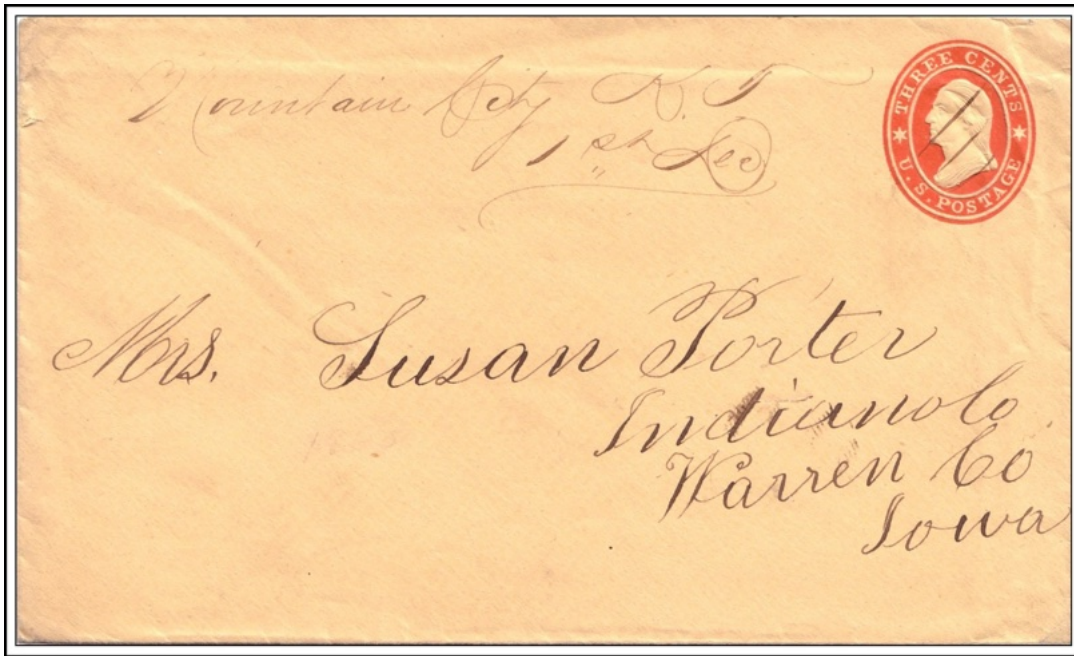 Mountain City K. T
1st Dec
THREE CENTS
U.S. POSTAGE
Mrs. Susan Porter
Indianola
Warren Co
Iowa